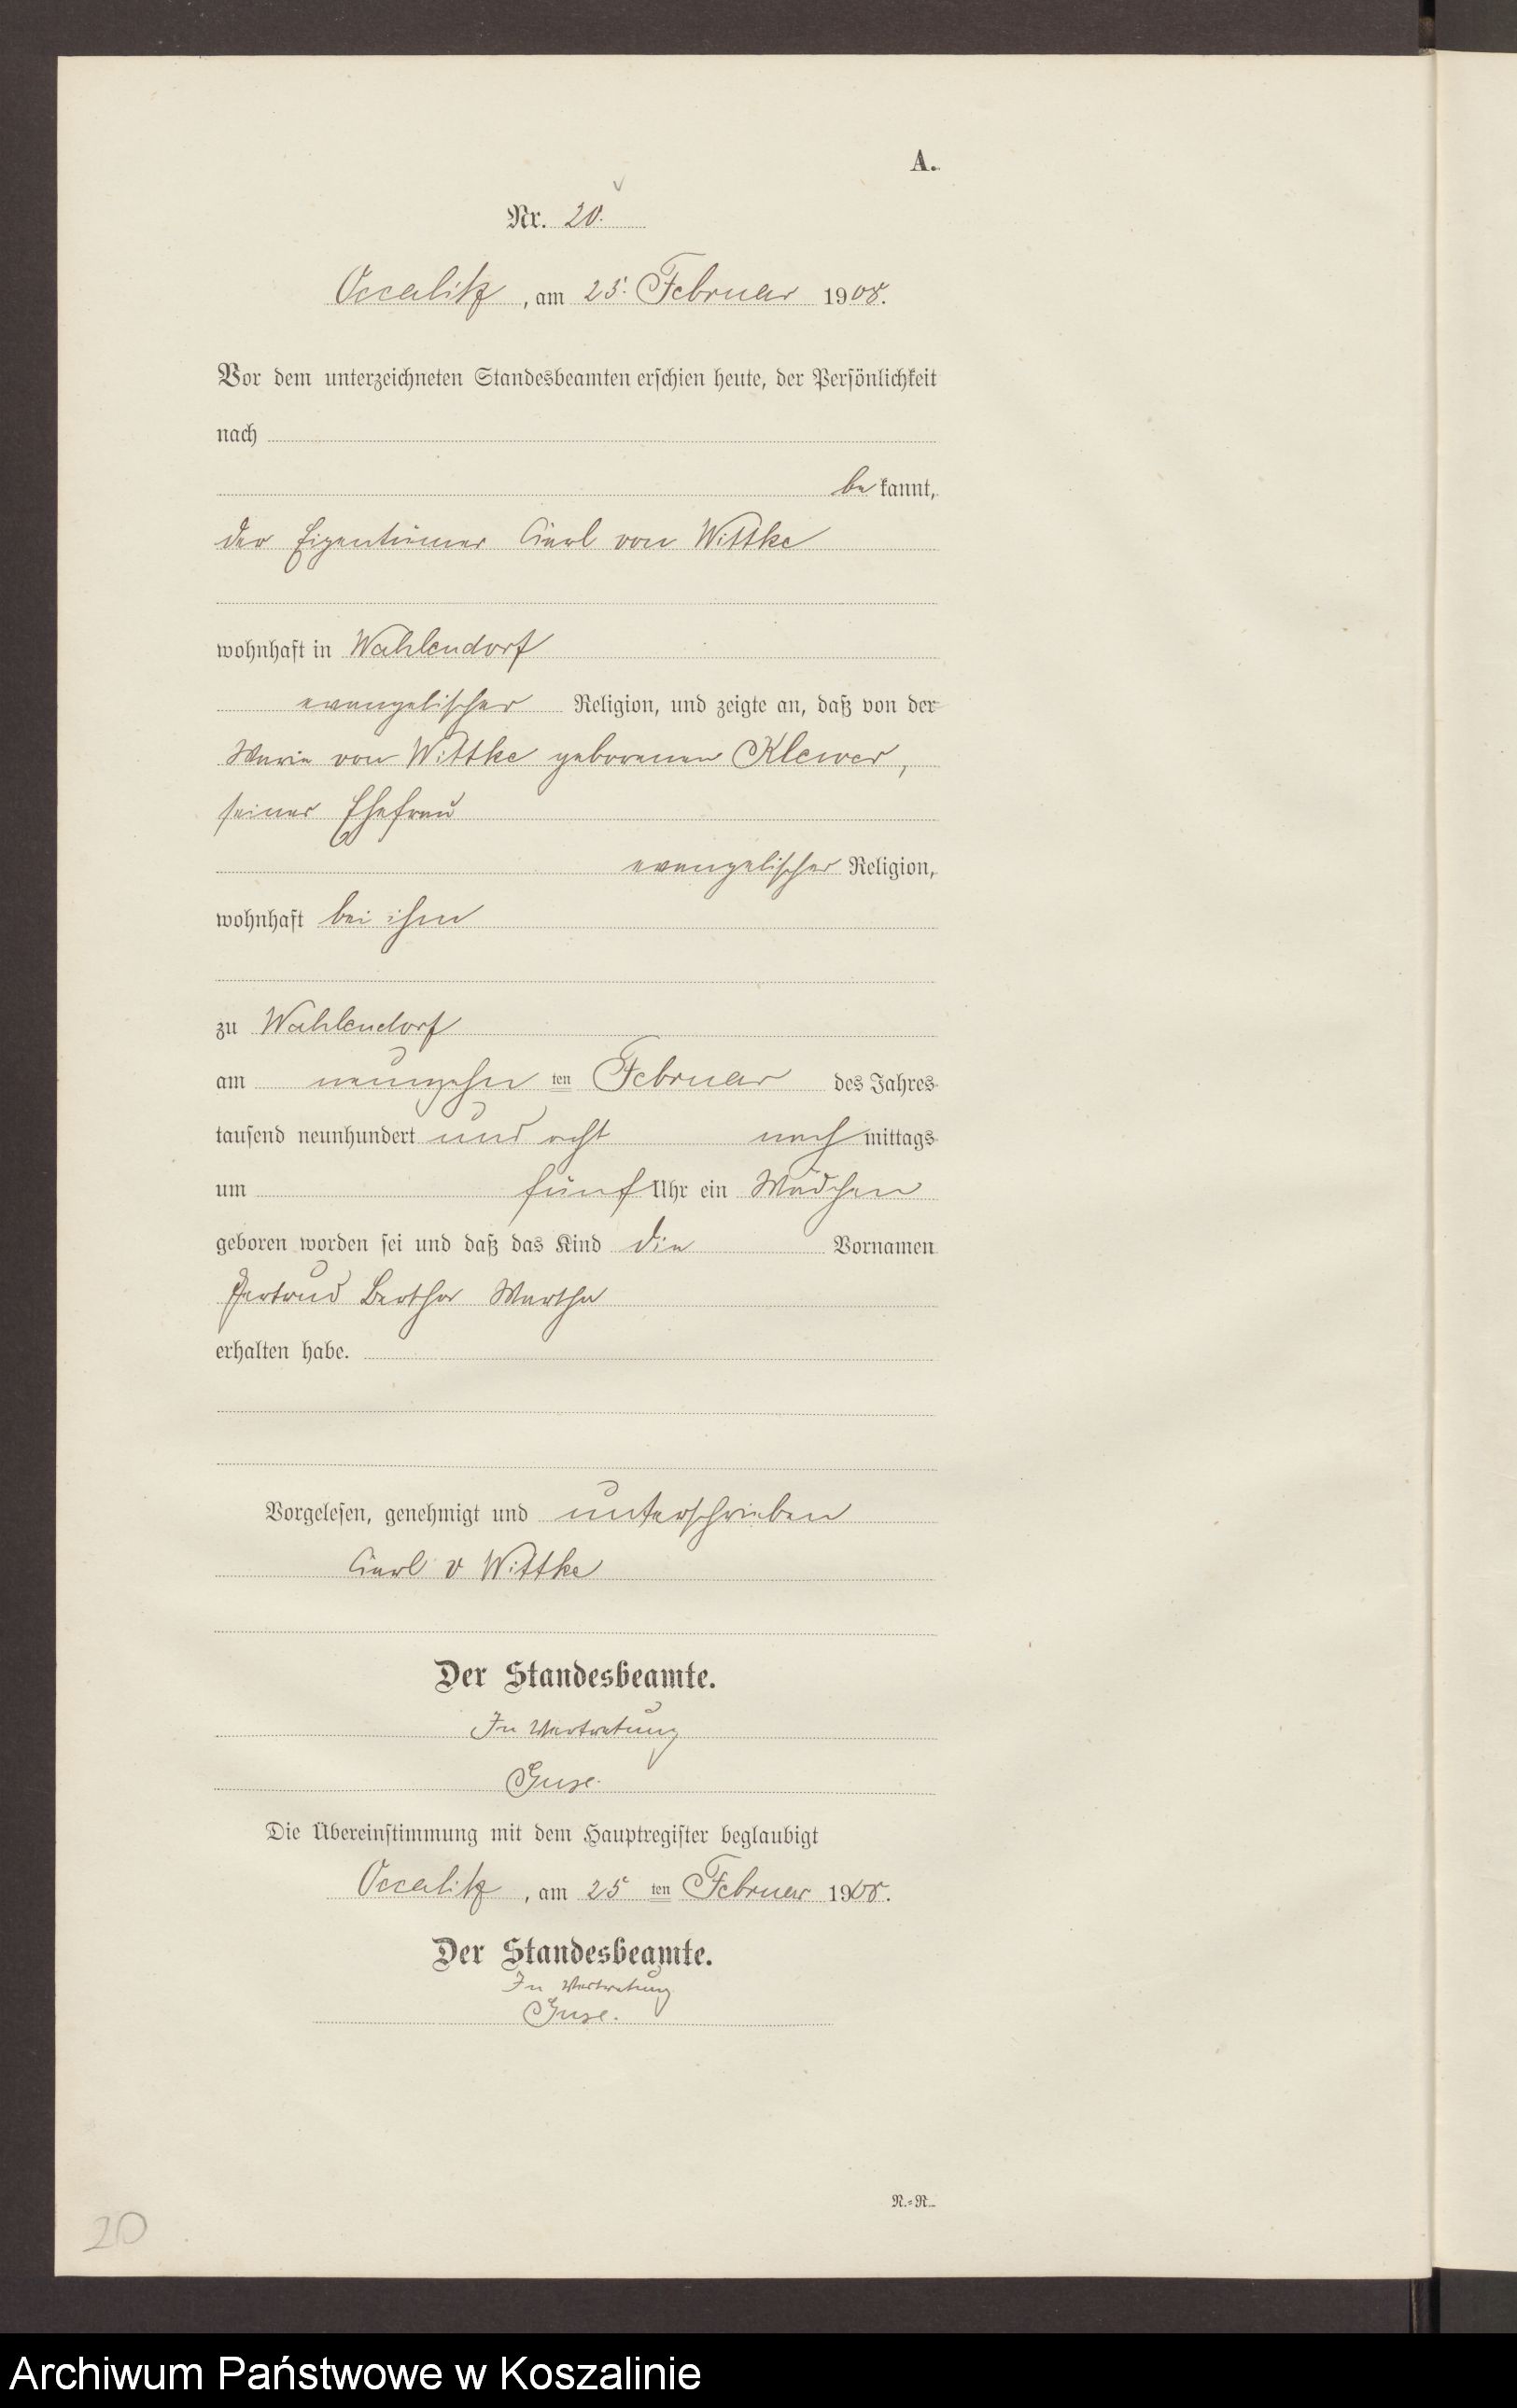 A.
Nr. 20.
Occalitz, am 25. Februar 1908.
Vor dem unterzeichneten Standesbeamten erschien heute, der Persönlichkeit
nach
be kannt,
der Eigentümer Carl von Wittke
wohnhaft in Wahlendorf
evangelischer Religion, und zeigte an, daß von der
Marie von Wittke geborenen Klewer,
seiner Ehefrau
evangelischer Religion,
wohnhaft bei ihm
zu Wahlendorf
am neunzehn ten Februar des Jahres
tausend neunhundert und acht nach mittags
um fünf Uhr ein Mädchen
geboren worden sei und daß das Kind die Vornamen
Gertrud Bertha Martha
erhalten habe.
Vorgelesen, genehmigt und unterschrieben
Carl v Wittke
Der Standesbeamte.
In Vertretung
Guse.
Die Übereinstimmung mit dem Hauptregister beglaubigt
Occalitz, am 25 ten Februar 1908.
Der Standesbeamte.
In Vertretung
Guse.
R.=R.
20
Archiwum Państwowe w Koszalinie